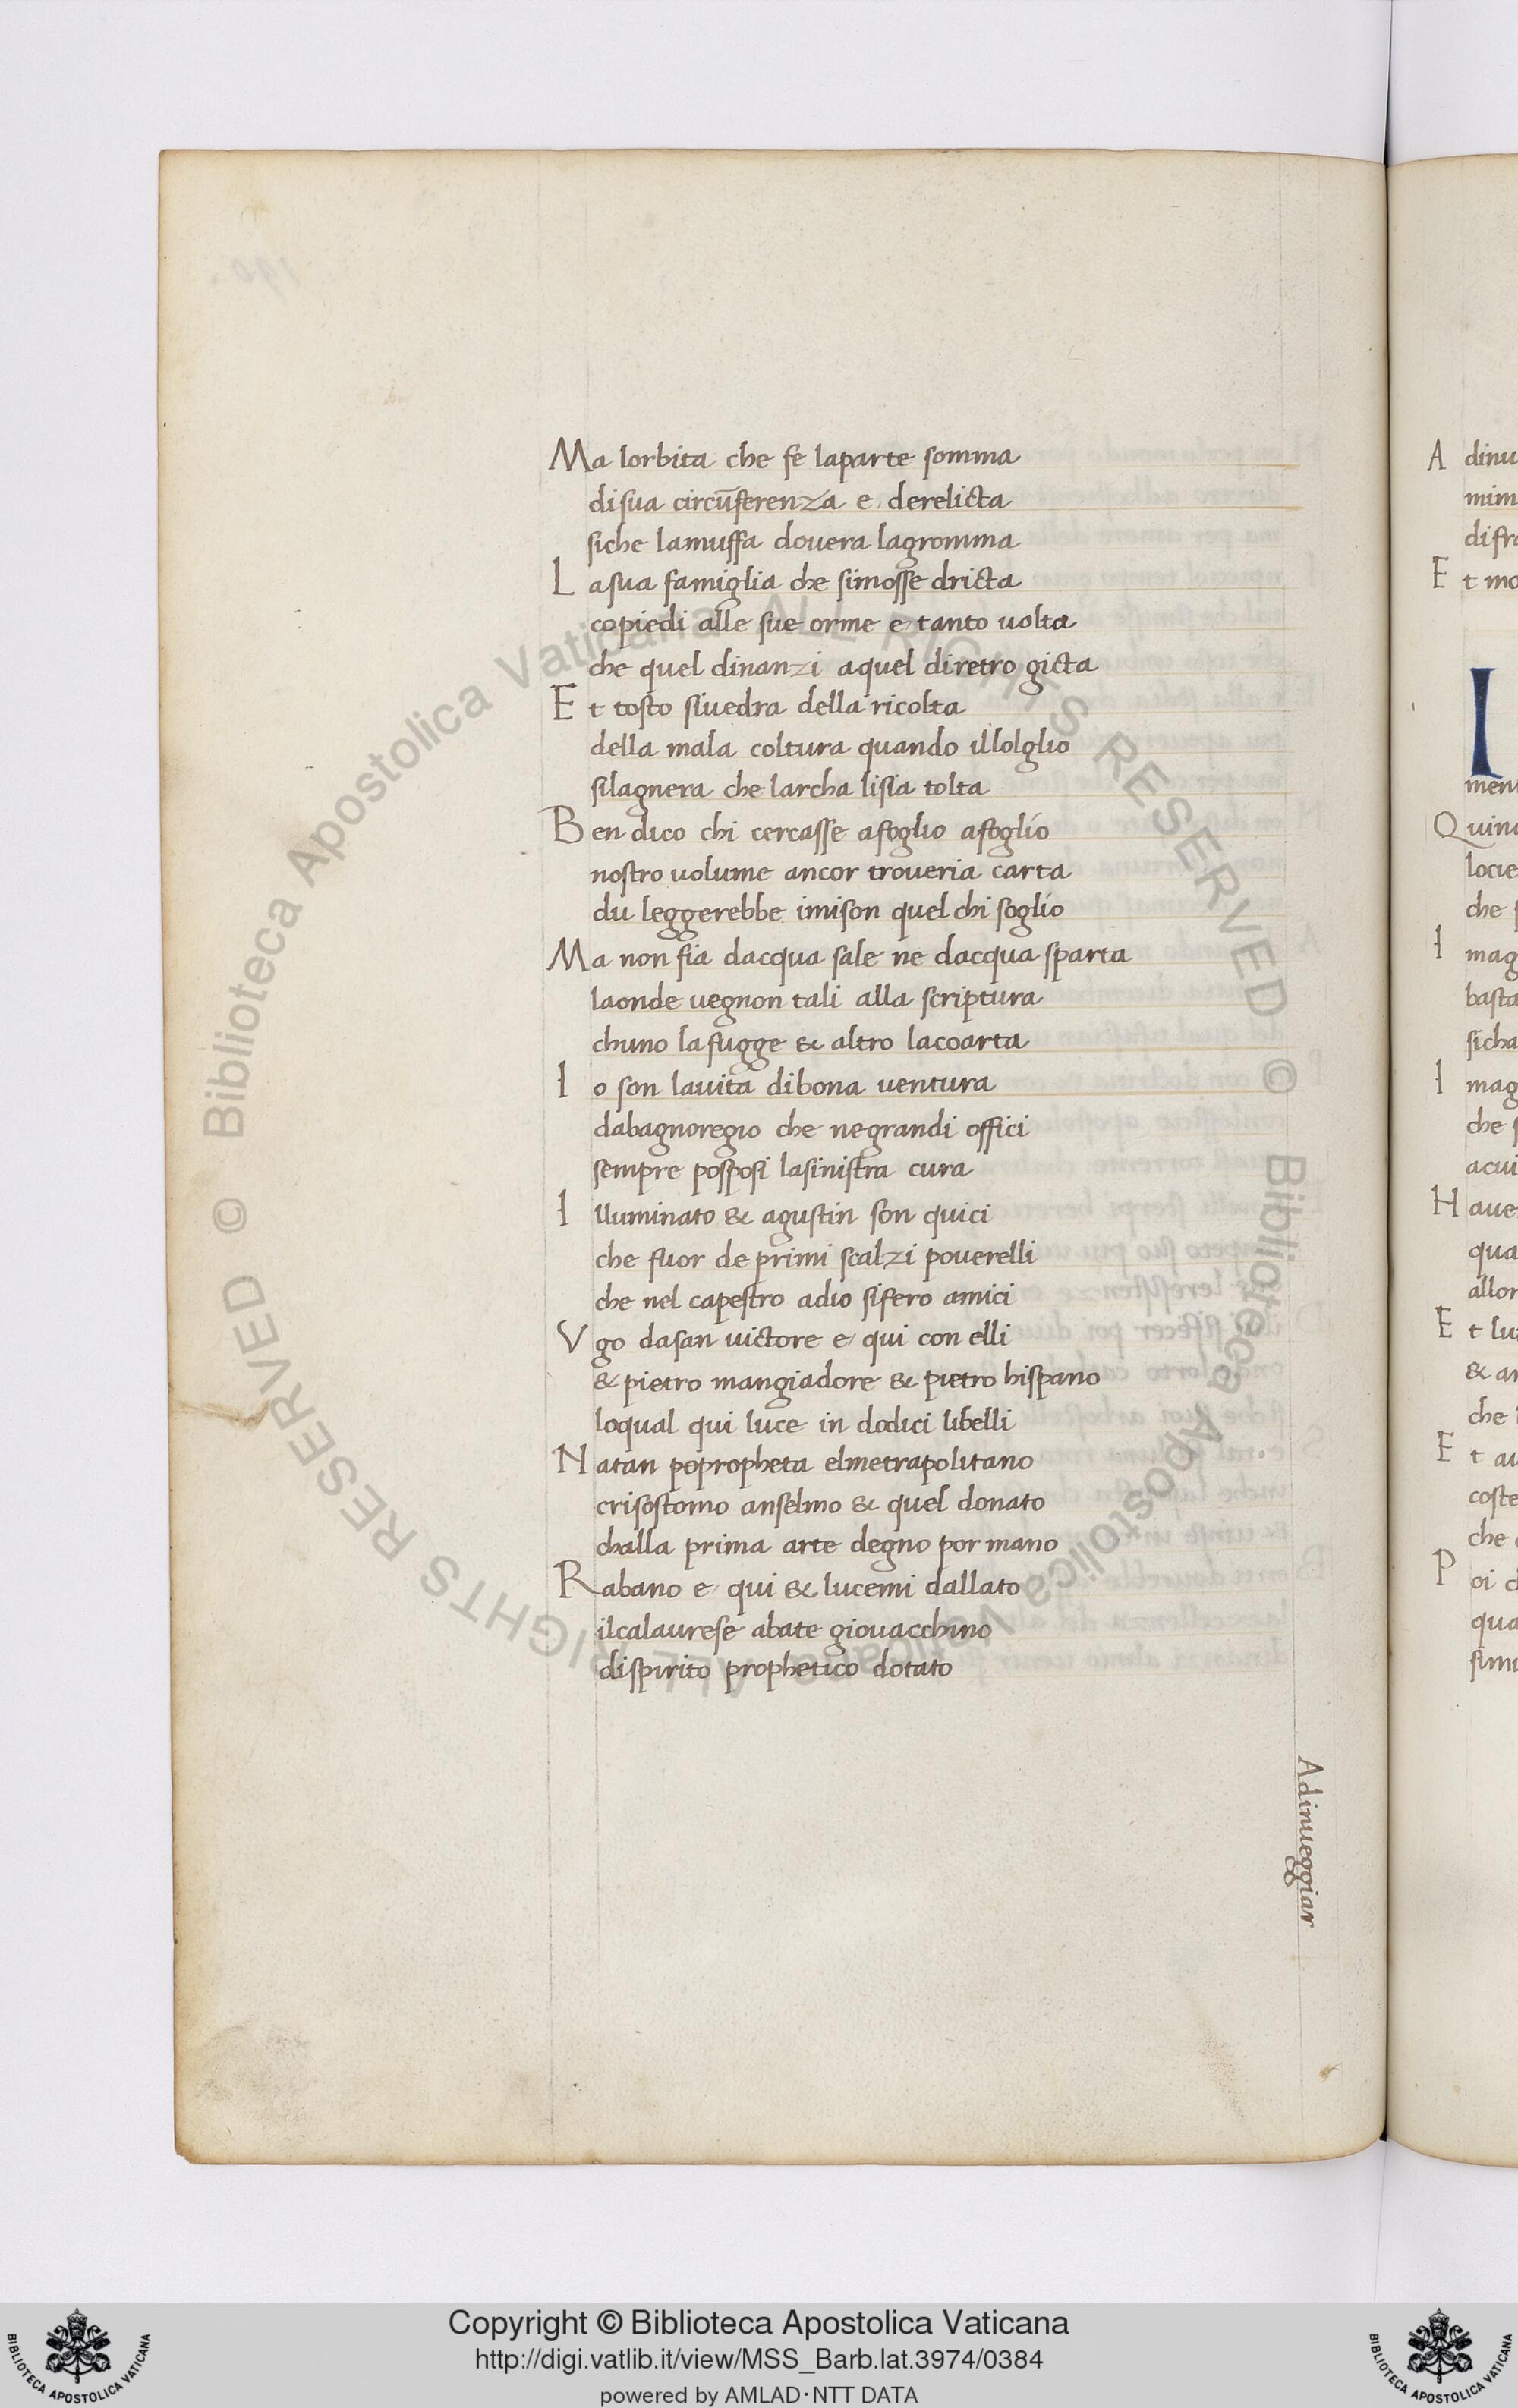 Ma lorbita che fe laparte somma
disua circūferenza e derelicta
siche lamuffa douera lagromma
L asua famiglia che simosse dricta
copiedi alle sue orme e tanto uolta
che quel dinanzi aquel diretro gicta
E t tosto siuedra della ricolta
della mala coltura quando illolglio
silagnera che larcha lisia tolta
B en dico chi cercasse afoglio afoglio
nostro uolume ancor troueria carta
du leggerebbe imison quel chi soglio
Ma non fia dacqua sale ne dacqua sparta
laonde uegnon tali alla scriptura
chuno lafugge & altro lacoarta
I o son lauita dibona uentura
dabagnoregio che negrandi offici
sempre posposi lasinistra cura
I lluminato & agustin son quici
che fuor de primi scalzi pouerelli
che nel capestro adio sifero amici
V go dasan uictore e qui con elli
& pietro mangiadore & pietro hispano
loqual qui luce in dodici libelli
N atan popropheta elmetrapolitano
crisostomo anselmo & quel donato
challa prima arte degno por mano
R abano e qui & lucemi dallato
ilcalaurese abate giouacchino
dispirito prophetico dotato
Adinueggiar
A dinu
mim
difra
E t mo
I
men
Quin
locie
che s
I mag
basta
sicha
I mag
che s
acui
H aue
qua
allor
E t lu
& ar
che
E t au
coste
che
P oi c
qua
simi
Biblioteca Apostolica Vaticana ALL RIGHTS RESERVED ©
Biblioteca Apostolica Vaticana ALL RIGHTS RESERVED ©
BIBLIOTECA APOSTOLICA VATICANA
Copyright © Biblioteca Apostolica Vaticana
http://digi.vatlib.it/view/MSS_Barb.lat.3974/0384
powered by AMLAD·NTT DATA
BIBLIOTECA APOSTOLICA VATICANA